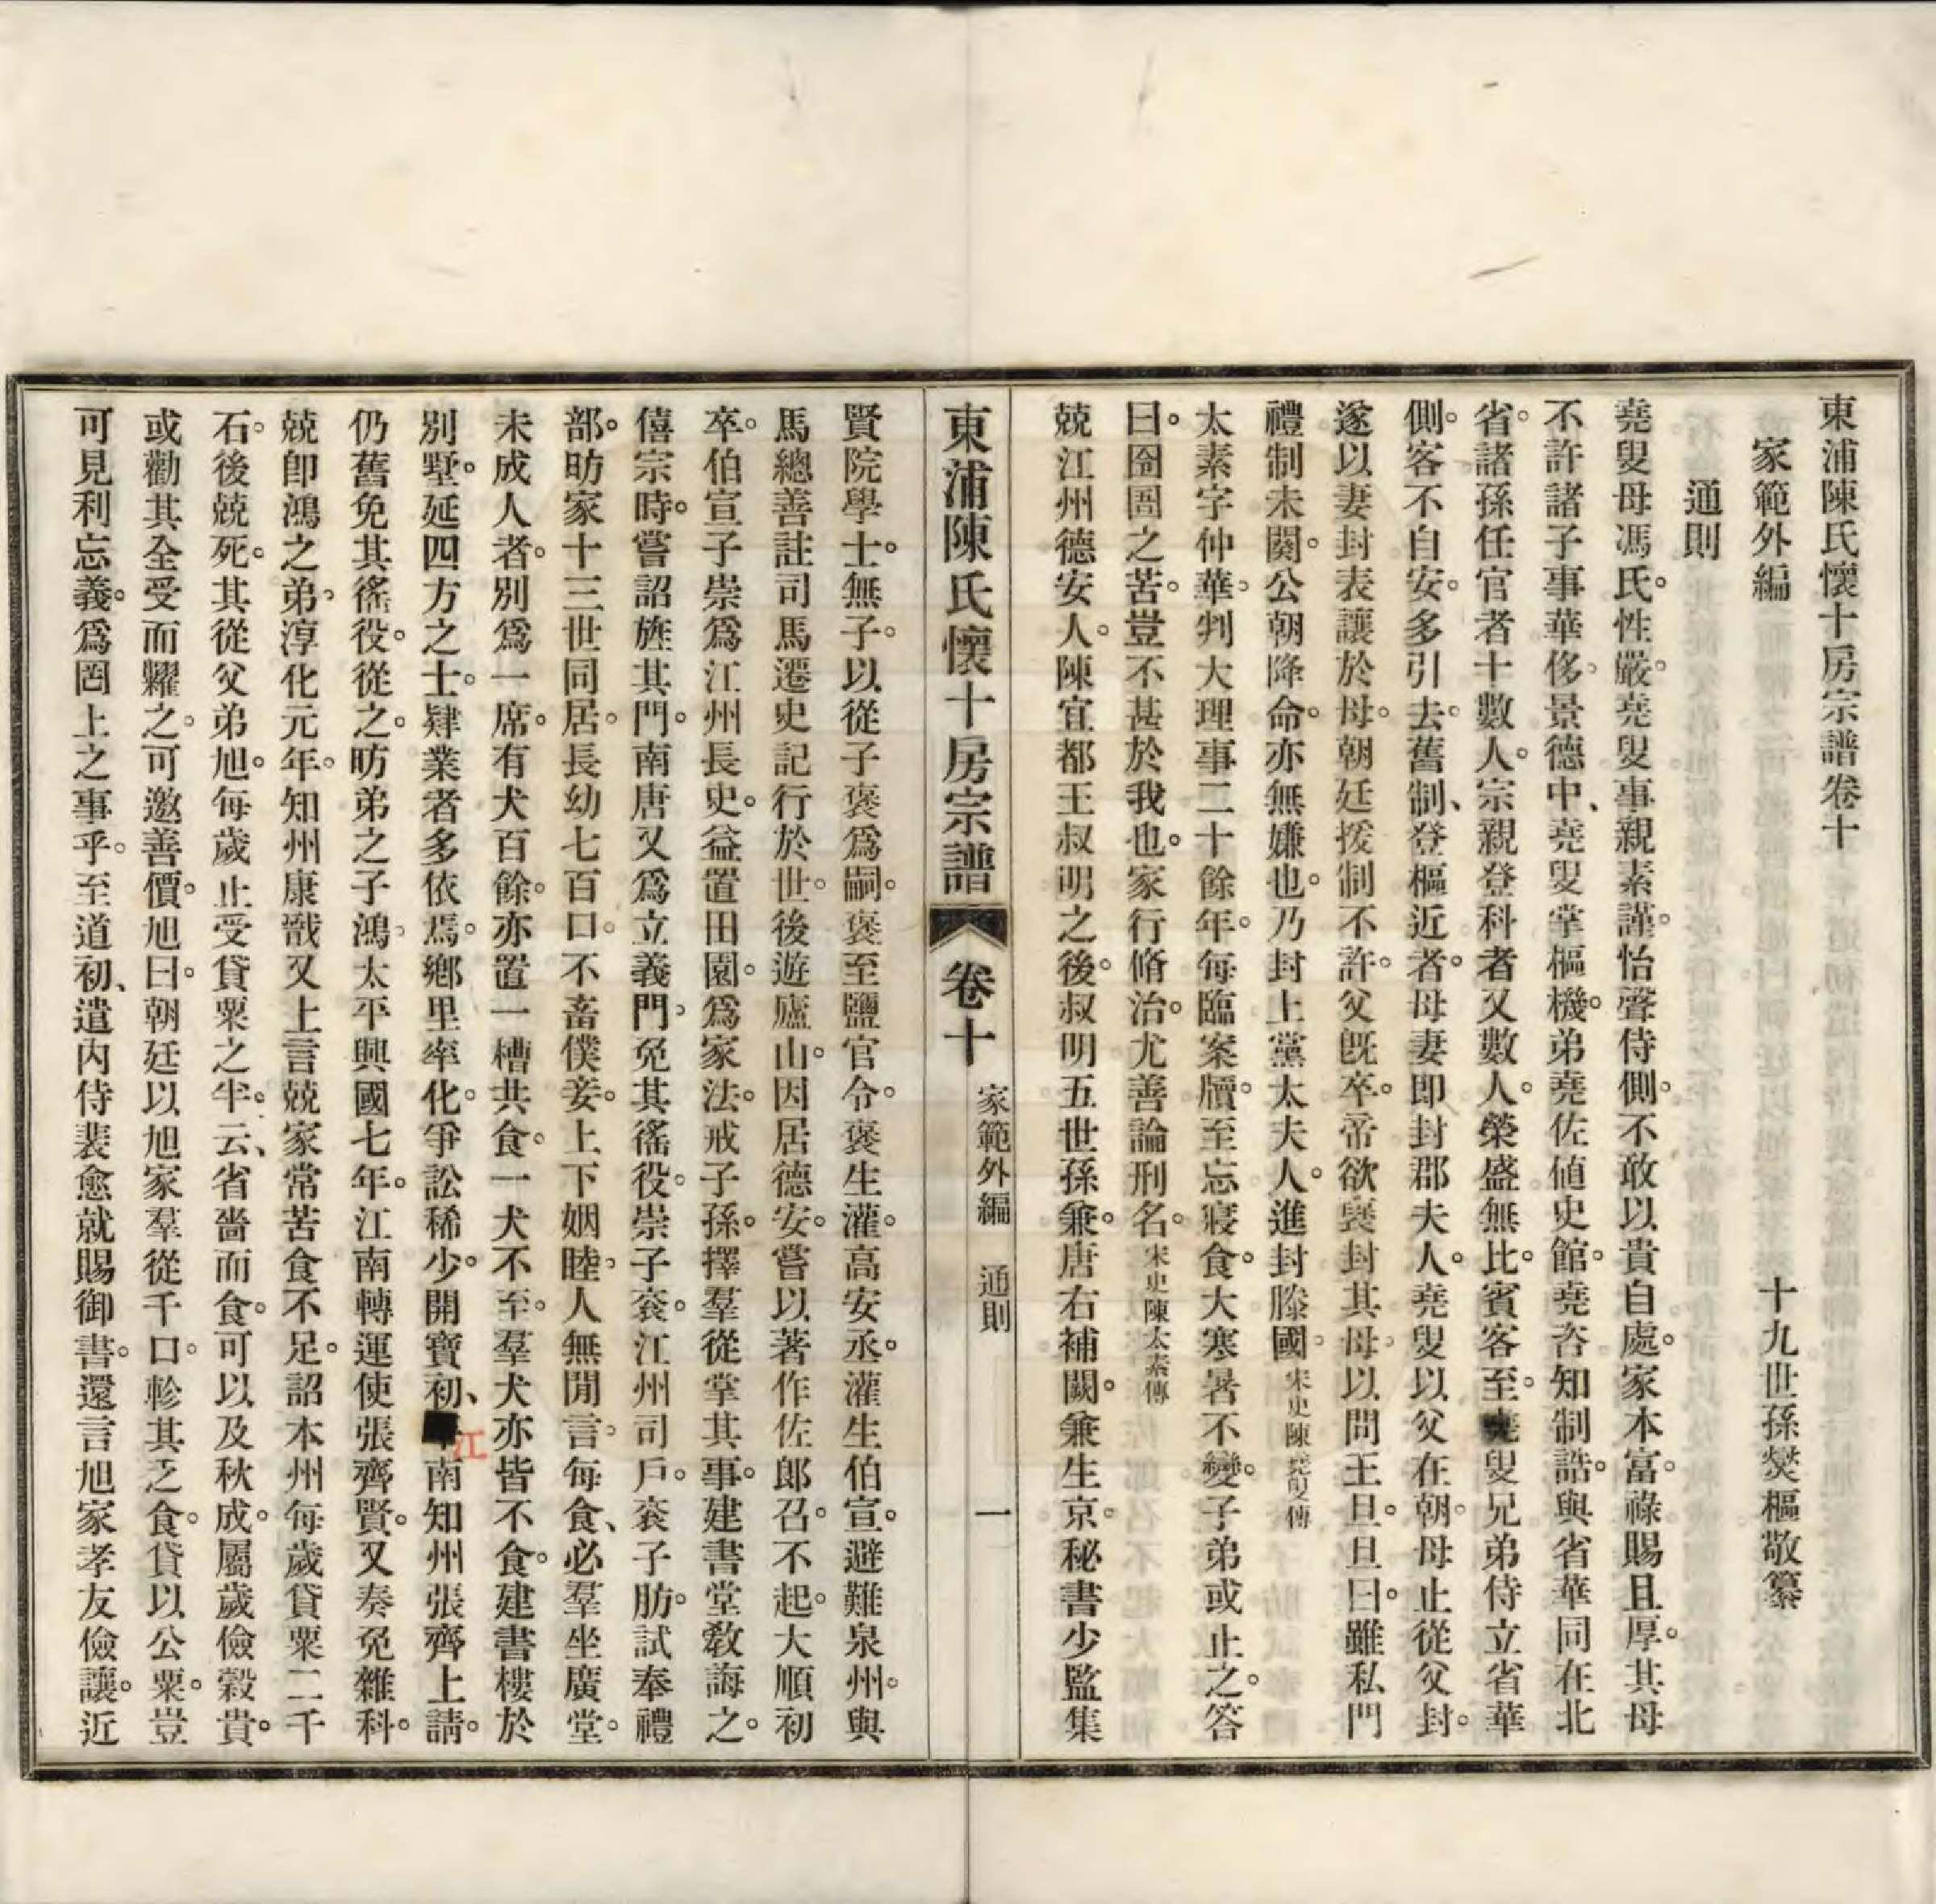 東浦陳氏懷十房宗譜卷十
家範外編　十九世孫燮樞敬纂
通則
堯叟母馮氏。性嚴。堯叟事親素謹。怡聲侍側。不敢以貴自處。家本富。祿賜且厚。其母
不許諸子事華侈。景德中、堯叟掌樞機。弟堯佐値史館。堯咨知制誥。與省華同在北
省。諸孫任官者十數人。宗親登科者又數人。榮盛無比。賓客至。堯叟兄弟侍立省華
側。客不自安。多引去。舊制、登樞近者。母妻即封郡夫人。堯叟以父在朝。母止從父封。
遂以妻封表讓於母。朝廷援制不許。父旣卒。帝欲襃封其母。以問王旦。旦曰。雖私門
禮制未闋。公朝降命。亦無嫌也。乃封上黨太夫人。進封滕國。宋史陳堯叟傳
太素字仲華。判大理事二十餘年。每臨案牘。至忘寢食。大寒暑不變。子弟或止之。答
曰。囹圄之苦。豈不甚於我也。家行脩治。尤善論刑名。宋史陳太素傳
兢江州德安人。陳宜都王叔明之後。叔明五世孫兼。唐右補闕。兼生京。秘書少監集
東浦陳氏懷十房宗譜　卷十　家範外編　通則　一
賢院學士。無子。以從子褒爲嗣。褒至鹽官令。褒生灌。高安丞。灌生伯宣。避難泉州。與
馬總善註司馬遷史記行於世。後遊廬山。因居德安。嘗以著作佐郎召。不起。大順初
卒。伯宣子崇爲江州長史。益置田園。爲家法。戒子孫。擇羣從掌其事。建書堂敎誨之。
僖宗時。嘗詔旌其門。南唐又爲立義門。免其徭役。崇子衮。江州司戶。衮子肪。試奉禮
部。昉家十三世同居。長幼七百口。不畜僕妾。上下姻睦。人無閒言。每食、必羣坐廣堂。
未成人者。別爲一席。有犬百餘。亦置一槽共食。一犬不至。羣犬亦皆不食。建書樓於
別墅。延四方之士。肄業者多依焉。鄕里率化。爭訟稀少。開寶初、江南知州張齊上請。
仍舊免其徭役。從之。昉弟之子鴻。太平興國七年。江南轉運使張齊賢。又奏免雜科。
兢卽鴻之弟。淳化元年。知州康戩又上言兢家常苦食不足。詔本州每歲貸粟二千
石。後兢死。其從父弟旭。每歲止受貸粟之半。云、省嗇而食。可以及秋成。屬歲儉穀貴。
或勸其全受而糶之。可邀善價。旭曰。朝廷以旭家羣從千口。軫其乏食。貸以公粟。豈
可見利忘義。爲罔上之事乎。至道初、遣內侍裴愈就賜御書。還言旭家孝友儉讓。近